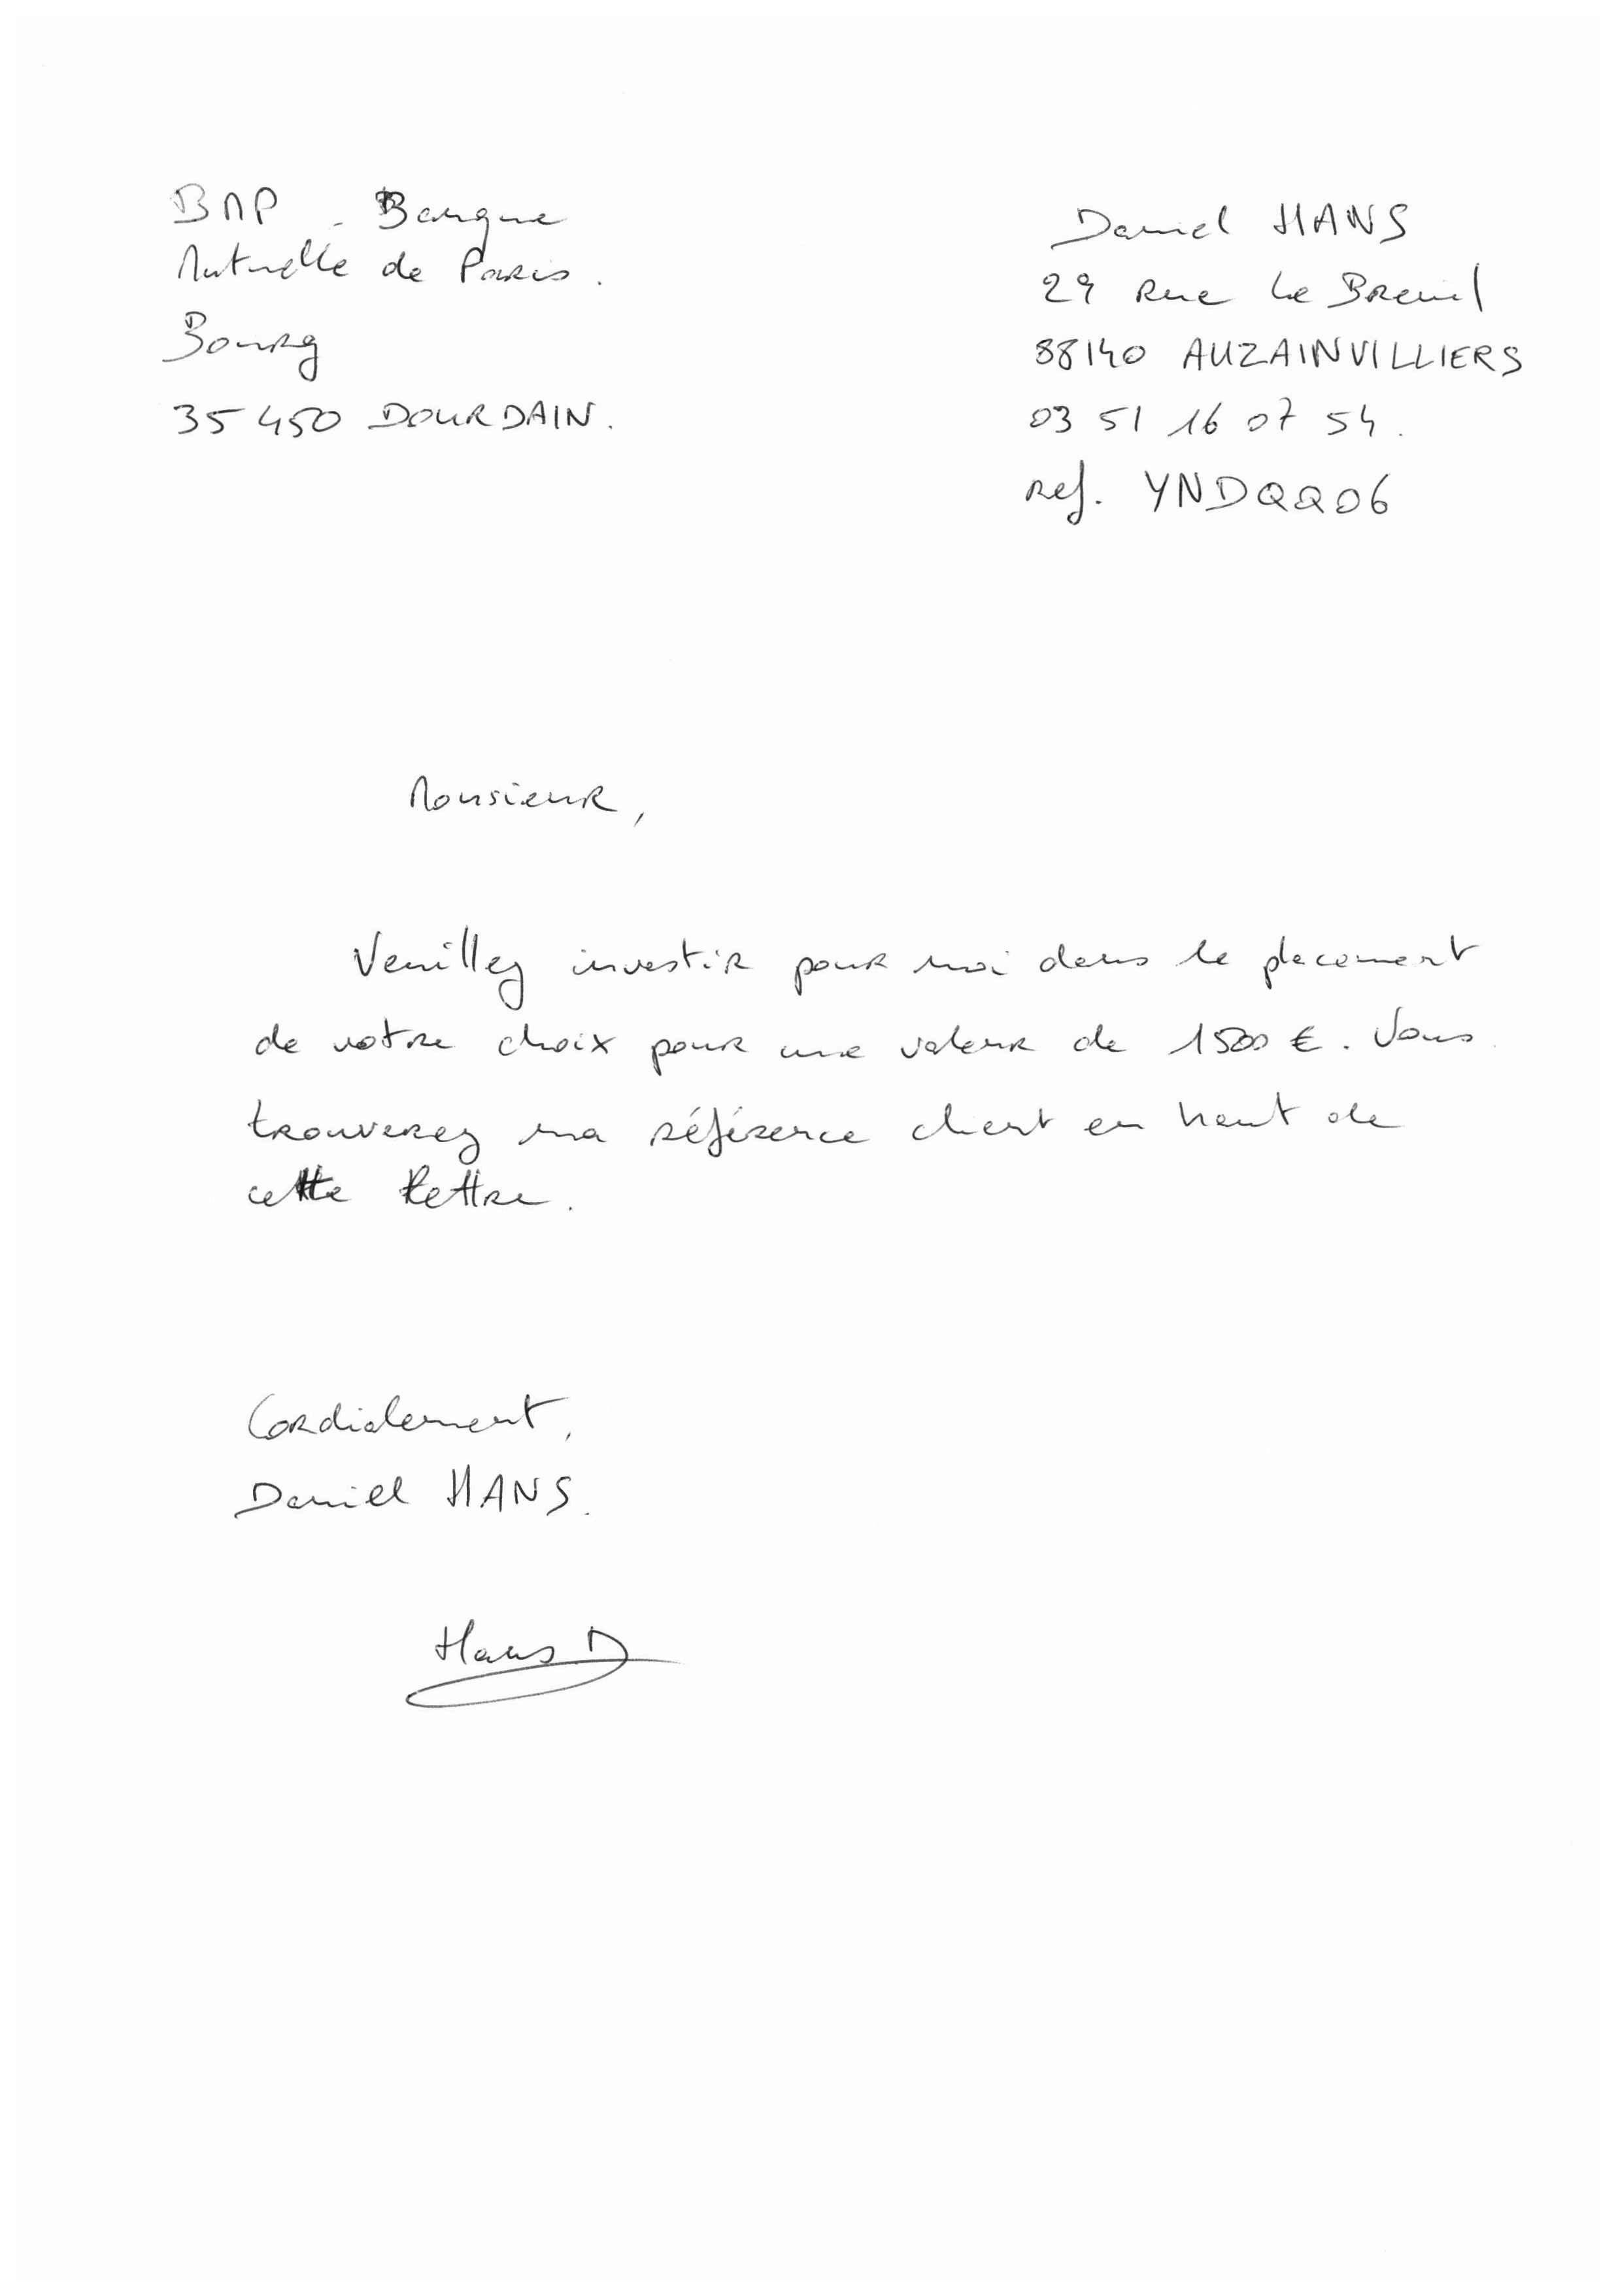 BMP - Banque
Mutuelle de Paris.
Bourg
35450 DOURDAIN.
Daniel HANS
29 Rue Le Breuil
88140 AUZAINVILLIERS
03 51 16 07 54.
Ref. YNDQQ06
Monsieur,
Veuillez investir pour moi dans le placement
de votre choix pour une valeur de 1500 €. Vous
trouverez ma référence client en haut de
cette lettre.
Cordialement,
Daniel HANS.
Hans D